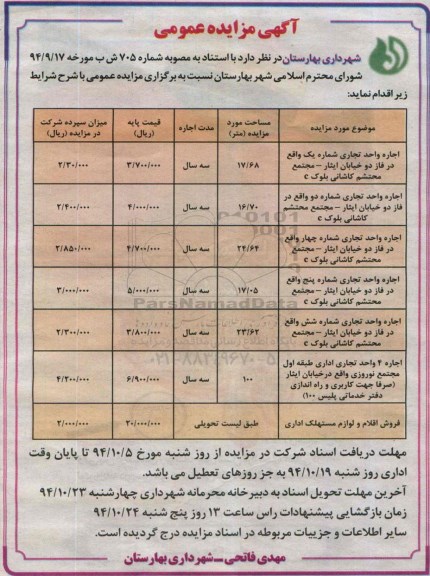 آگهی مزایده عمومی
شهرداری بهارستان در نظر دارد با استناد به مصوبه شماره ۷۰۵ ش ب مورخه ۹۴/۹/۱۷
شورای محترم اسلامی شهر بهارستان نسبت به برگزاری مزایده عمومی با شرح شرایط
زیر اقدام نماید:
موضوع مورد مزایده | مساحت مورد مزایده (متر) | مدت اجاره | قیمت پایه (ریال) | میزان سپرده شرکت در مزایده (ریال)
اجاره واحد تجاری شماره یک واقع در فاز دو خیابان ایثار – مجتمع محتشم کاشانی بلوک c | ۱۷/۶۸ | سه سال | ۳/۷۰۰/۰۰۰ | ۲/۳۰/۰۰۰
اجاره واحد تجاری شماره دو واقع در فاز دو خیابان ایثار – مجتمع محتشم کاشانی بلوک c | ۱۶/۷۰ | سه سال | ۴/۰۰۰/۰۰۰ | ۲/۴۰۰/۰۰۰
اجاره واحد تجاری شماره چهار واقع در فاز دو خیابان ایثار – مجتمع محتشم کاشانی بلوک c | ۲۴/۶۴ | سه سال | ۴/۷۰۰/۰۰۰ | ۲/۸۵۰/۰۰۰
اجاره واحد تجاری شماره پنج واقع در فاز دو خیابان ایثار – مجتمع محتشم کاشانی بلوک c | ۱۷/۰۵ | سه سال | ۵/۰۰۰/۰۰۰ | ۳/۰۰۰/۰۰۰
اجاره واحد تجاری شماره شش واقع در فاز دو خیابان ایثار – مجتمع محتشم کاشانی بلوک c | ۲۳/۶۲ | سه سال | ۳/۸۰۰/۰۰۰ | ۲/۳۰۰/۰۰۰
اجاره ۴ واحد تجاری اداری طبقه اول مجتمع نوروزی واقع درخیابان ایثار (صرفا جهت کاربری و راه اندازی دفتر خدماتی پلیس ۱۰۰) | ۱۰۰ | سه سال | ۶/۹۰۰/۰۰۰ | ۴/۲۰۰/۰۰۰
فروش اقلام و لوازم مستهلک اداری | طبق لیست تحویلی | ۲۰/۰۰۰/۰۰۰ | ۲/۰۰۰/۰۰۰
ParsNamadData
مهلت دریافت اسناد شرکت در مزایده از روز شنبه مورخ ۹۴/۱۰/۵ تا پایان وقت
اداری روز شنبه ۹۴/۱۰/۱۹ به جز روزهای تعطیل می باشد.
آخرین مهلت تحویل اسناد به دبیرخانه محرمانه شهرداری چهارشنبه ۹۴/۱۰/۲۳
زمان بازگشایی پیشنهادات راس ساعت ۱۳ روز پنج شنبه ۹۴/۱۰/۲۴
سایر اطلاعات و جزییات مربوطه در اسناد مزایده درج گردیده است.
مهدی فاتحی – شهرداری بهارستان